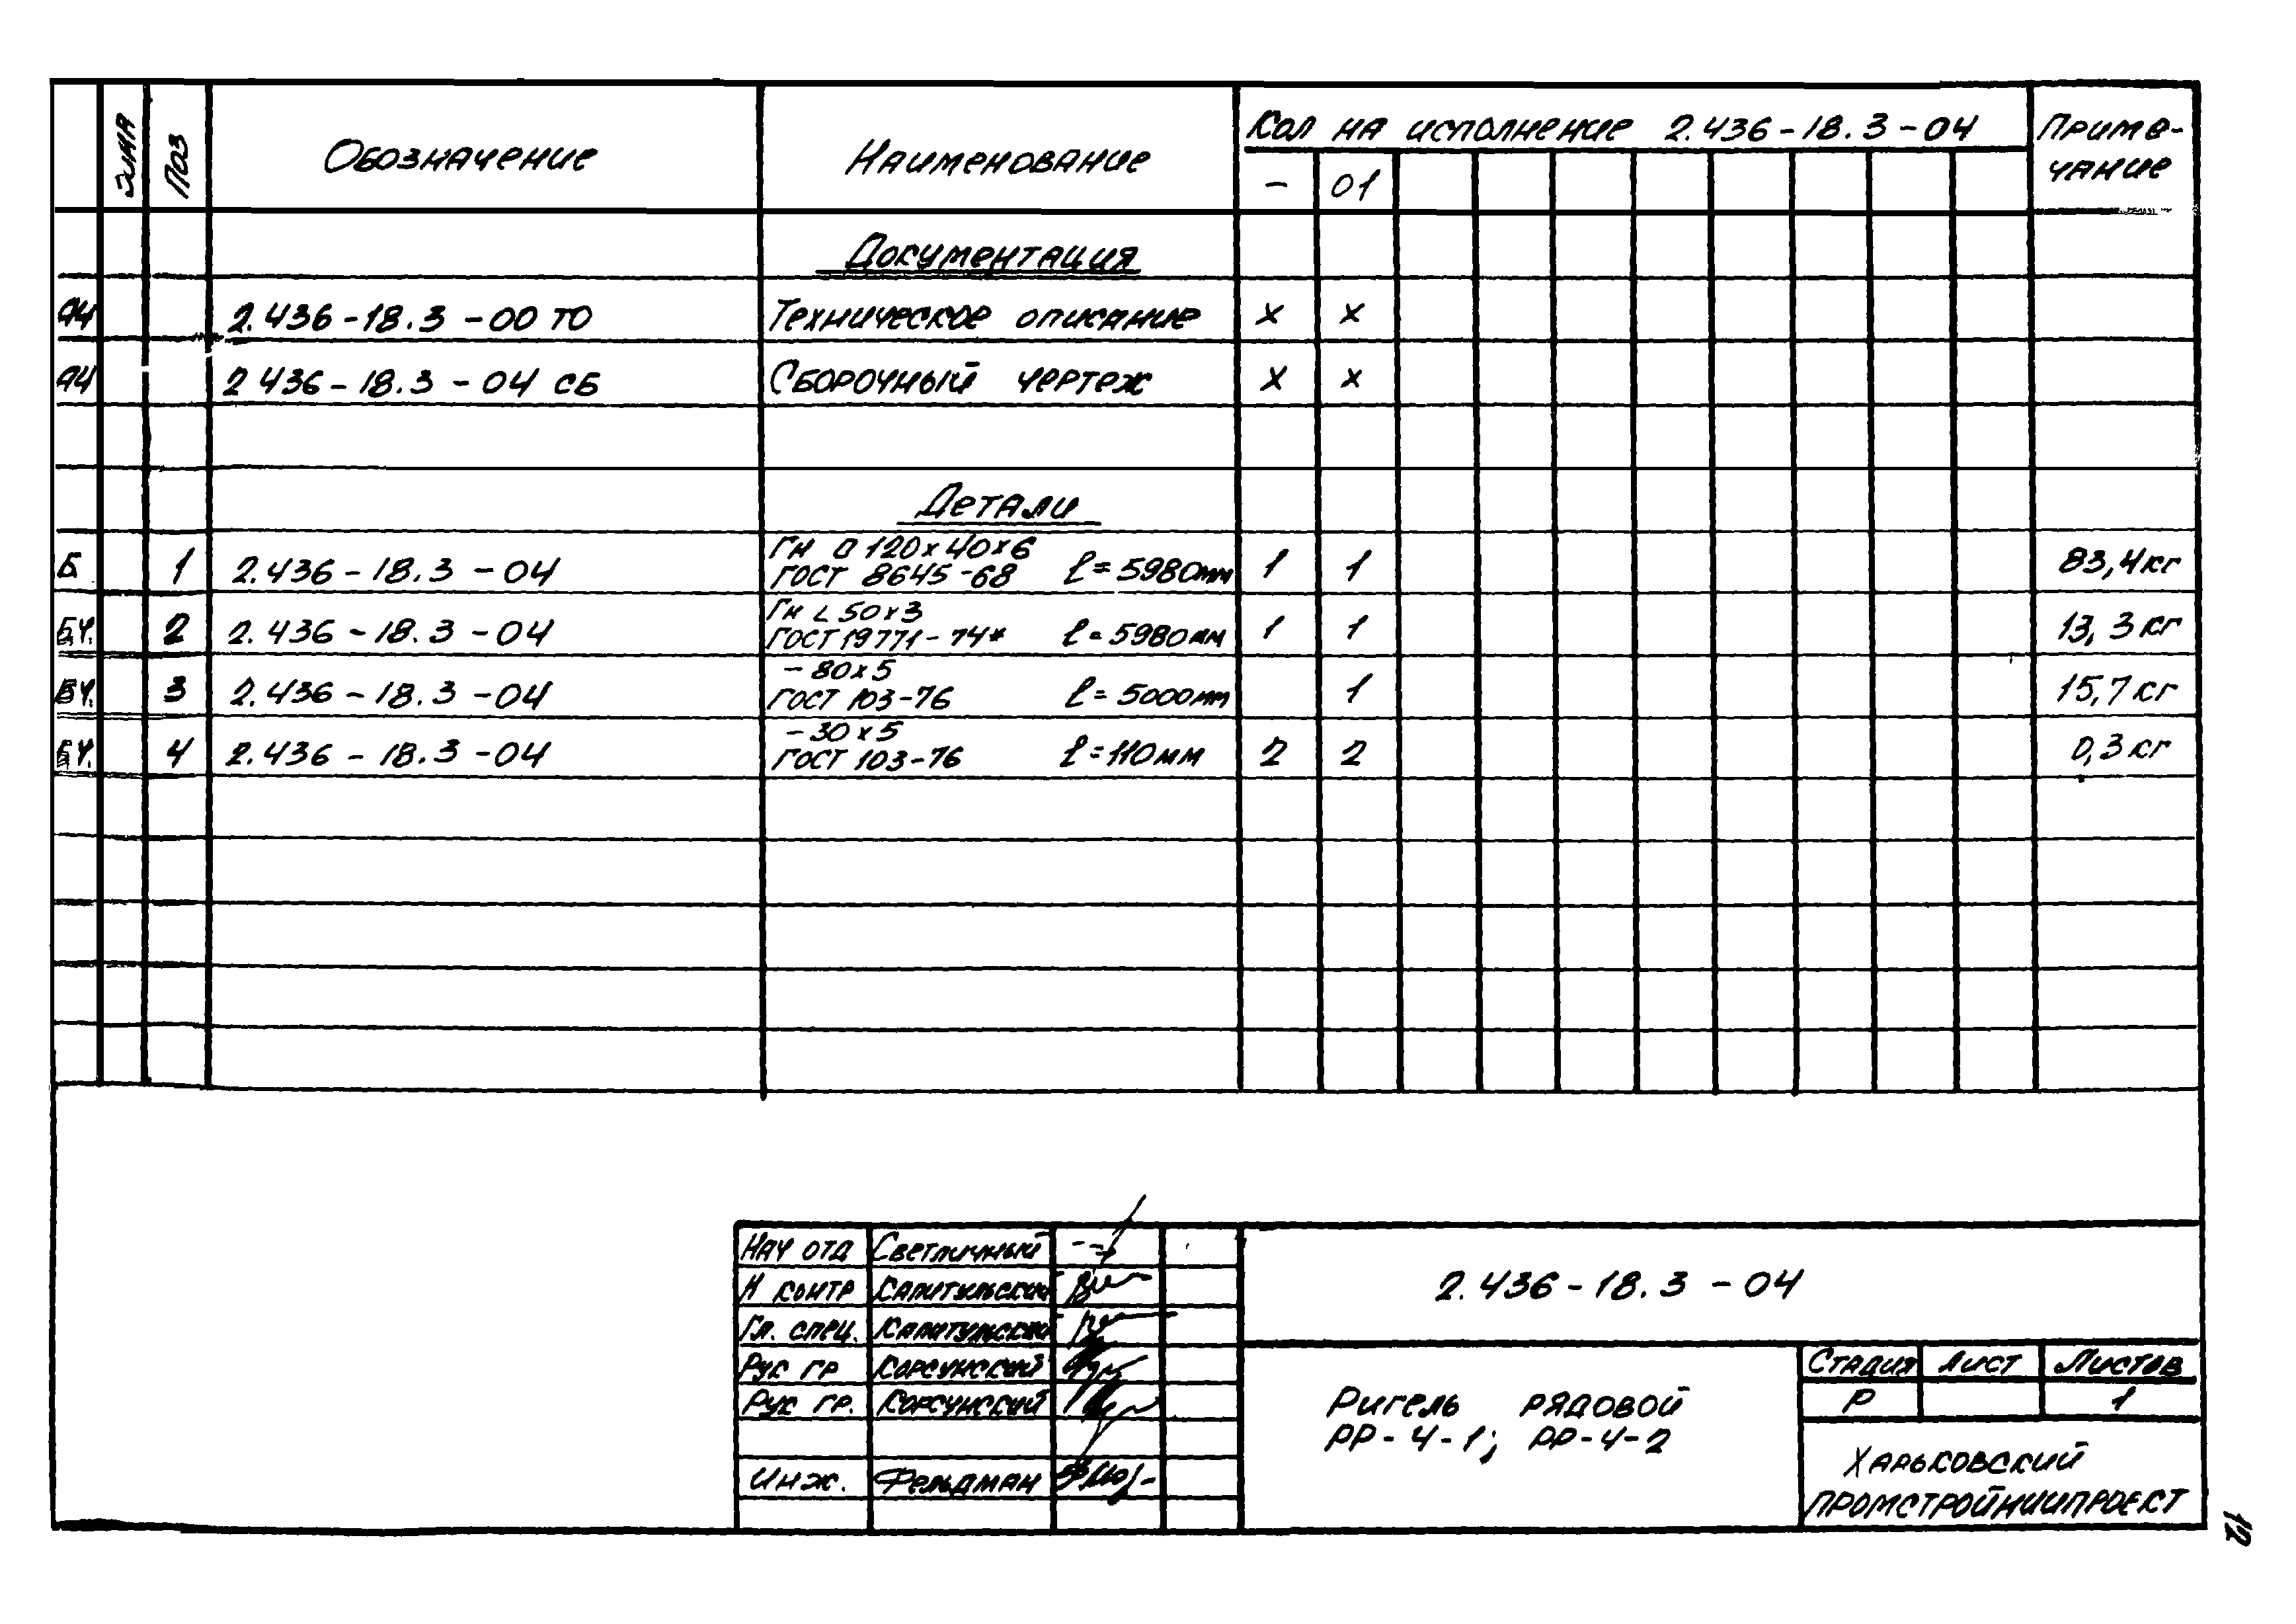 Зона Поз Обозначение Наименование Кол на исполнение 2.436-18.3-04 Приме-
чание
- 01
Документация
А4 2.436-18.3-00 ТО Техническое описание х х
А4 2 436-18.3-04 СБ Сборочный чертеж х х
Детали
Гн □ 120х40х6
Б 1 2.436-18.3-04 ГОСТ 8645-68 ℓ=5980мм 1 1 83,4кг
Гн L 50х3
БЧ. 2 2.436-18.3-04 ГОСТ 19771-74* ℓ=5980мм 1 1 13,3кг
- 80х5
БЧ. 3 2.436-18.3-04 ГОСТ 103-76 ℓ=5000мм 1 15,7кг
- 30х5
БЧ. 4 2.436-18.3-04 ГОСТ 103-76 ℓ=110мм 2 2 0,3кг
Нач отд Светличный
Н контр Капитульский
Гл. спец. Капитульский
Рук гр Корсунский
Рук гр. Корсунский
Инж. Фельдман
2.436-18.3-04
Ригель рядовой
РР-4-1; РР-4-2
Стадия Лист Листов
Р 1
Харьковский
ПРОМСТРОЙНИИПРОЕКТ
12